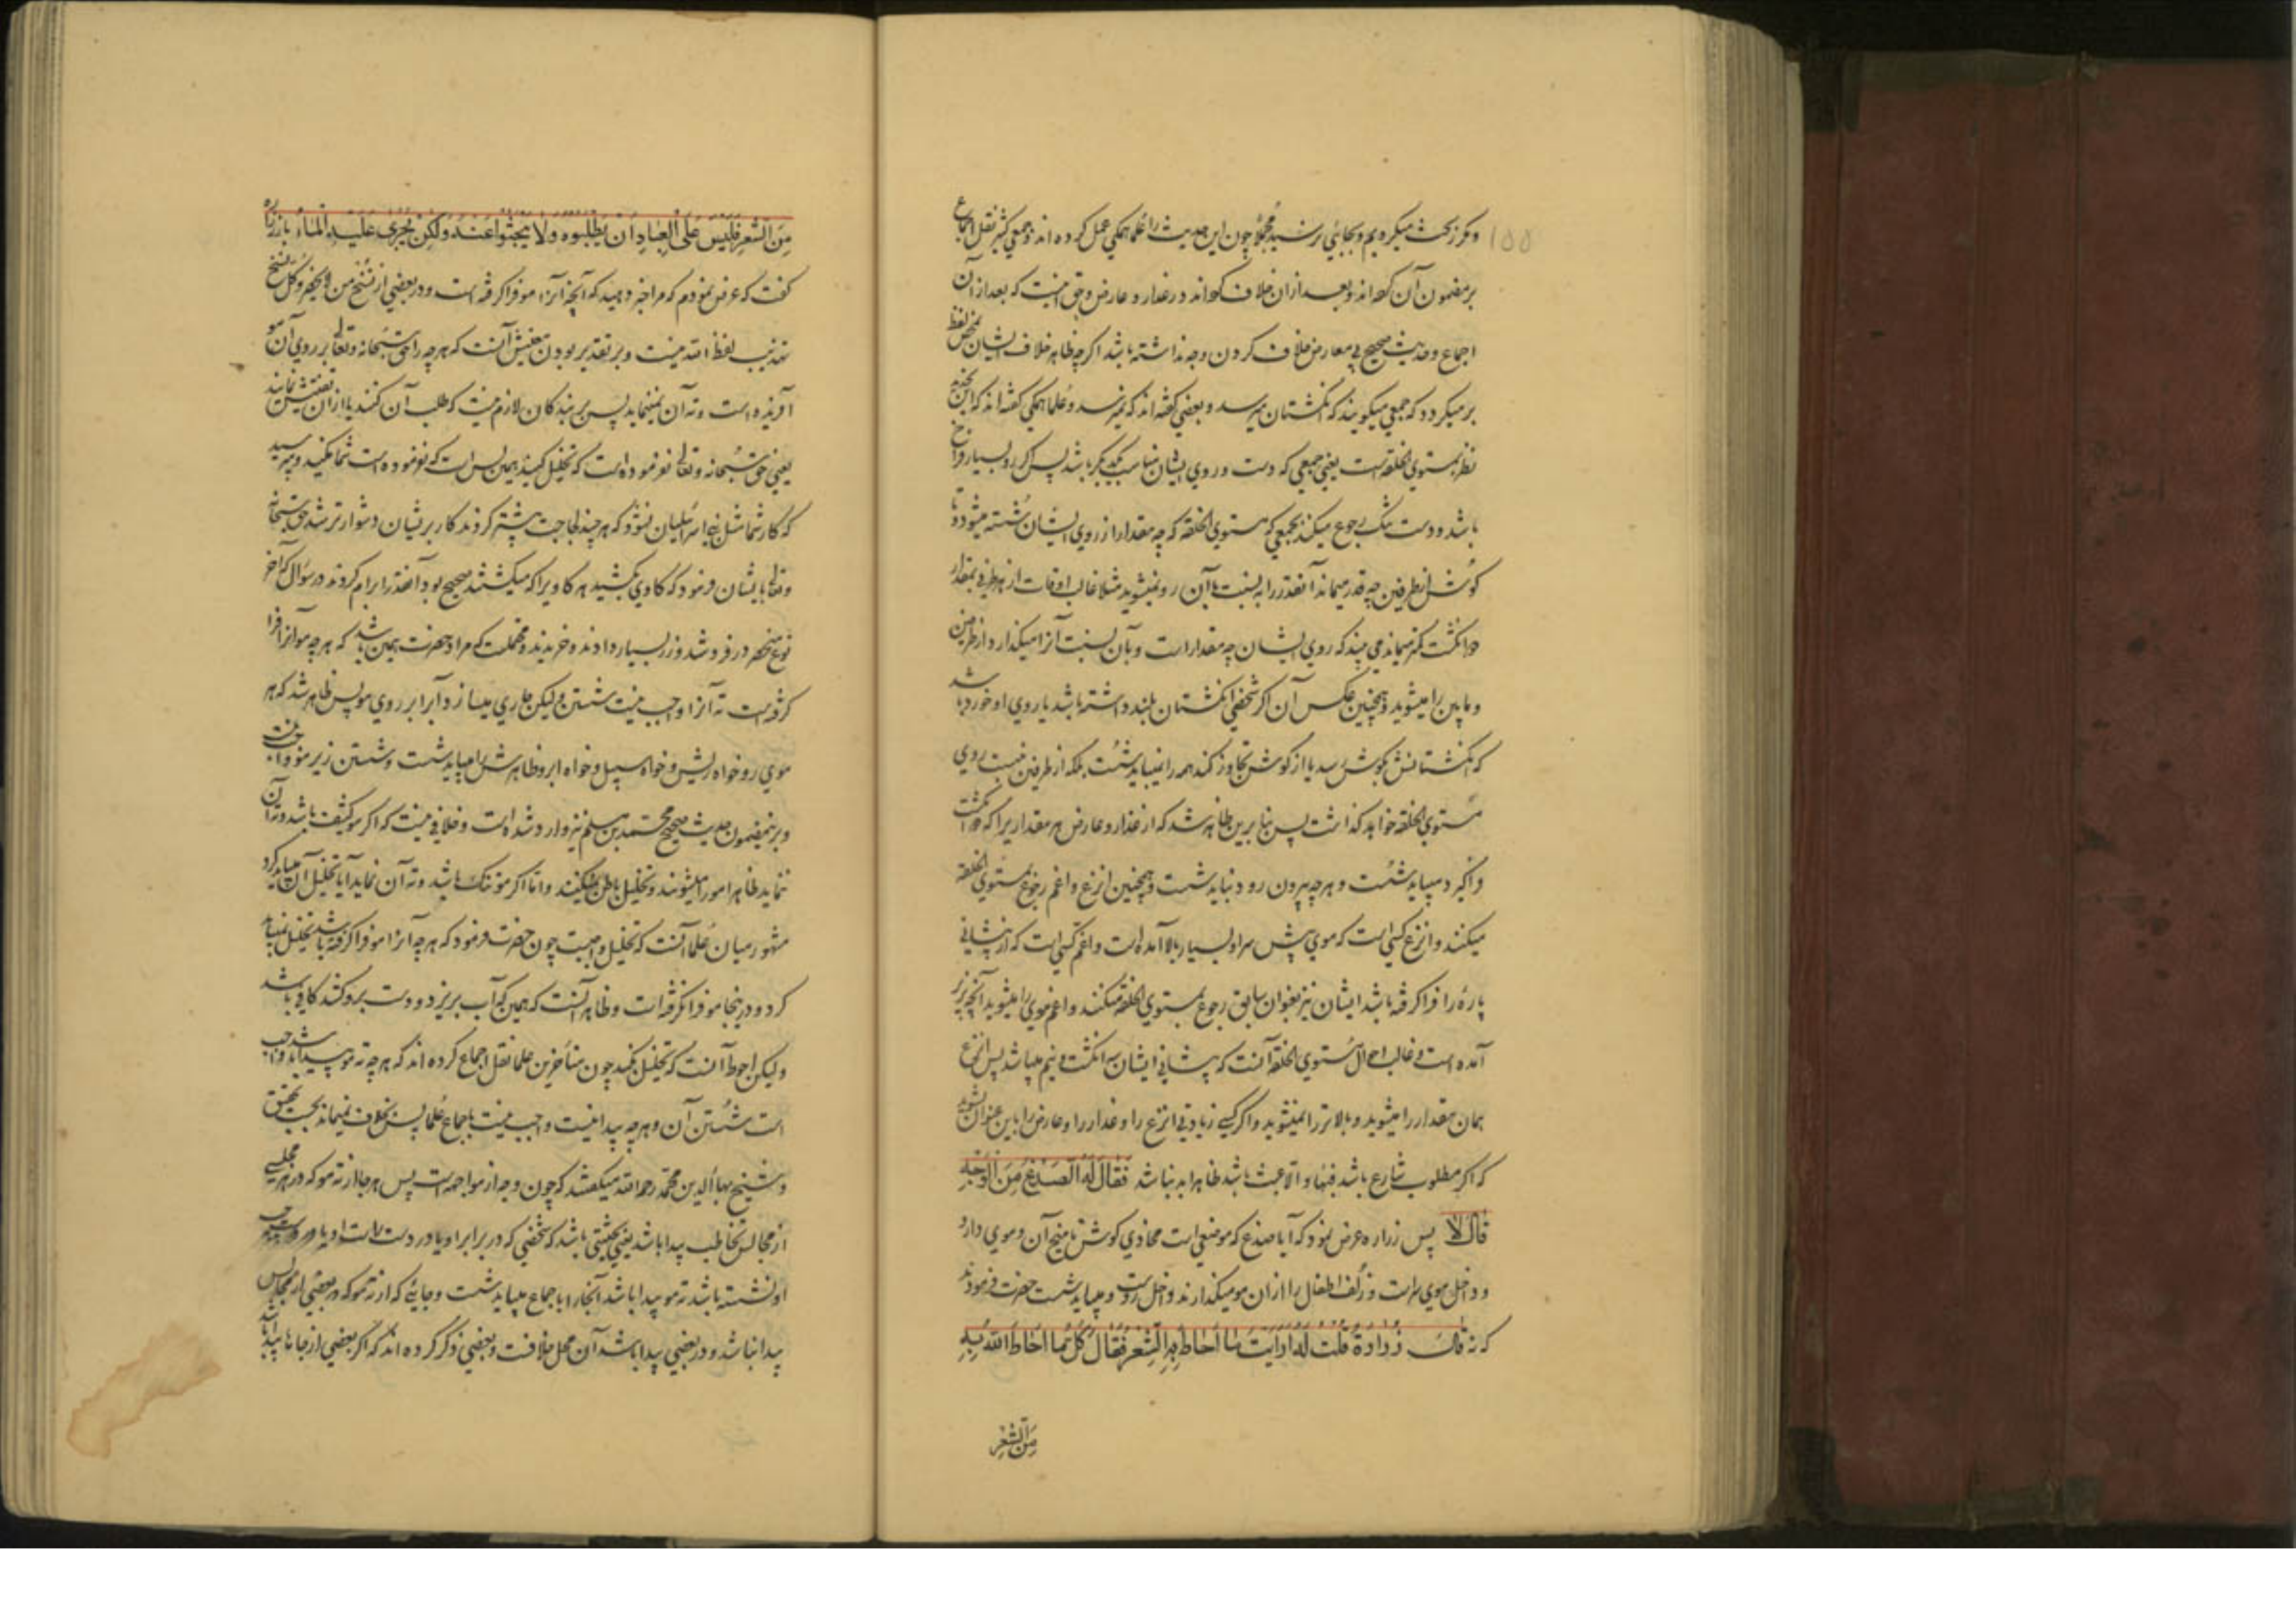 و مکرر بحث میکردیم و بجائی نرسید مجملا چون این حدیث را علما همکی عمل کرده اند و جمعی کثیر نقل اجماع
بر مضمون آن کرده اند و بعد از ان خلاف کرده اند در عذار و عارض و حق اینست که بعد از آن
اجماع و حدیث صحیح بی معارض خلاف کردن وجه نداشته باشد اکرچه ظاهر خلاف ایشان بمحض لفظ
بر میکردد که جمعی میکویند که انکشتان میرسد و بعضی کفته اند که نمیرسد و علما همکی کفته اند که این تحدید
نظر بمستوی الخلقه است یعنی جمعی که دست و روی ایشان مناسب یکدیکر باشد پس اکر رو بسیار فراخ
باشد و دست تنک رجوع میکند بجمعی که مستوی الخلقه که چه مقدار از روی ایشان شسته میشود و تا
کوش از طرفین چه قدر میماند آنقدر را به نسبت با آن رو نمیشوید مثلا غالب اوقات از هر طرفی بمقدار
دو انکشت کمتر میماند می بیند که روی ایشان چه مقدار است و بآن نسبت آنرا میکذارد از طرفین
و مابین را میشوید و همچنین عکس آن اکر شخصی انکشتان بلند داشته باشد یا روی او خورد باشد
که انکشتانش بکوش رسد یا از کوش تجاوز کند همه را نمیباید شست بلکه از طرفین نسبت روی
مستوی الخلقه خواهد کذاشت پس بنابرین ظاهر شد که از عذار و عارض هر مقدار یرا که دو انکشت
فراکیرد میباید شست و هرچه بیرون رود نباید شست و همچنین انزع و اغم رجوع بمستوی الخلقه
میکنند و انزع کسی است که موی پیش سر او بسیار بالا آمده است و اغم کسی است که از پیشانی
پاره را فراکرفته باشد ایشان نیز بعنوان سابق رجوع بمستوی الخلقه میکنند و اغم موی را میشوید آنچه بزیر
آمده است و غالب احوال مستوی الخلقه آنست که پیشانی ایشان سه انکشت و نیم میباشد پس انزع
همان مقدار را میشوید و بالاتر را نمیشوید و اکر کسی زیادتی انزع را و عذار را و عارض را باین عنوان بشوید
که اکر مطلوب شارع باشد فبها و الا عبث باشد ظاهرا بد نباشد فَقالَ لَهُ الصُدْغُ مِنَ الْوَجْهِ
قالَ لا پس زراره عرض نمود که آیا صدغ که موضعی است محاذی کوش تا منتهای آن و موی دارد
و داخل موی سر است و زلف اطفال را از ان مو میکذارند داخل روست و میباید شست حضرت فرمودند
که نه قالَ زُرارَةُ قُلْتُ لَهُ اَرَاَیْتَ ما اَحاطَ بِهِ الشَّعْرُ فَقالَ کُلُّ ما اَحاطَ اللّٰهُ بِهِ
مِنَ الشَّعْرِ
مِنَ الشَّعْرِ فَلَیْسَ عَلَی الْعِبادِ اَنْ یَطْلُبُوهُ وَلا یَبْحَثُوا عَنْهُ وَلکِنْ یُجْری عَلَیْهِ الْماءُ باز زراره
کفت که عرض نمودم که مرا خبر دهید که آنچه آنرا مو فراکرفته است و در بعضی از نسخ من لا یحضر و کل نسخ
تهذیب لفظ الله نیست و بر تقدیر بودن معنیش آنست که هرچه را حق سبحانه و تعالی بر روی آن مو
آفریده است و ته آن نمینماید پس بر بندکان لازم نیست که طلب آن کنند یا از آن تفتیش نمایند
یعنی حق سبحانه و تعالی نفرموده است که تخلیل کنید همین بس است که نفرموده است شما مکنید و مپرسید
که کار شما مثل بنی اسرائیلیان نشود که هرچند لجاجت بیشتر کردند کار بریشان دشوارتر شد حق سبحانه
و تعالی بایشان فرمود که کاوی بکشید هر کاویرا که میکشتند صحیح بود آنقدر ابرام کردند در سؤال که آخر
نوع منحصر در فرد شد و زر بسیار دادند و خریدند و محتملست که مراد حضرت همین باشد که هرچه مو آنرا فرا
کرفته است ته آنرا واجب نیست شستن و لیکن جاری میسازد آبرا بر روی مو پس ظاهر شد که هر
موی رو خواه ریش و خواه سبیل و خواه ابرو ظاهرش را میباید شست و شستن زیر مو واجب نیست
و برین مضمون حدیث صحیح محمد بن مسلم نیز وارد شده است و خلافی نیست که اکر مو کثیف باشد و ته آن
ننماید ظاهر مو را میشویند و تخلیل باطن نمیکنند و اما اکر مو تنک باشد و ته آن نماید آیا تخلیل آن میباید کرد
مشهور میان علما آنست که تخلیل واجبست چون حضرت فرمود که هرچه آنرا مو فراکرفته باشد تخلیل نمیباید
کرد و در ینجا مو فرا نکرفته است و ظاهر آنست که همین که آب بریزد و دست برو کشد کافی باشد
و لیکن احوط آنست که تخلیل بکند چون متأخرین علما نقل اجماع کرده اند که هرچه ته مو پیدا باشد واجب
است شستن آن و هرچه پیدا نیست واجب نیست باجماع علما پس خلاف نمیماند بحسب تحقیق
و شیخ بهاء الدین محمد رحمه الله میکفتند که چون وجه از مواجهه است پس هر جا از ته مو که در هر مجلسی
از مجالس تخاطب پیدا باشد یعنی بحیثیتی باشد که شخصی که در برابر او یا در دست راست او یا در دست چپ
او نشسته باشد ته مو پیدا باشد آنجا را باجماع میباید شست و جائی که از ته مو که در بعضی از مجالس
پیدا نباشد و در بعضی پیدا باشد آن محل خلافست و بعضی ذکر کرده اند که اکر بعضی از جاها پیدا باشد